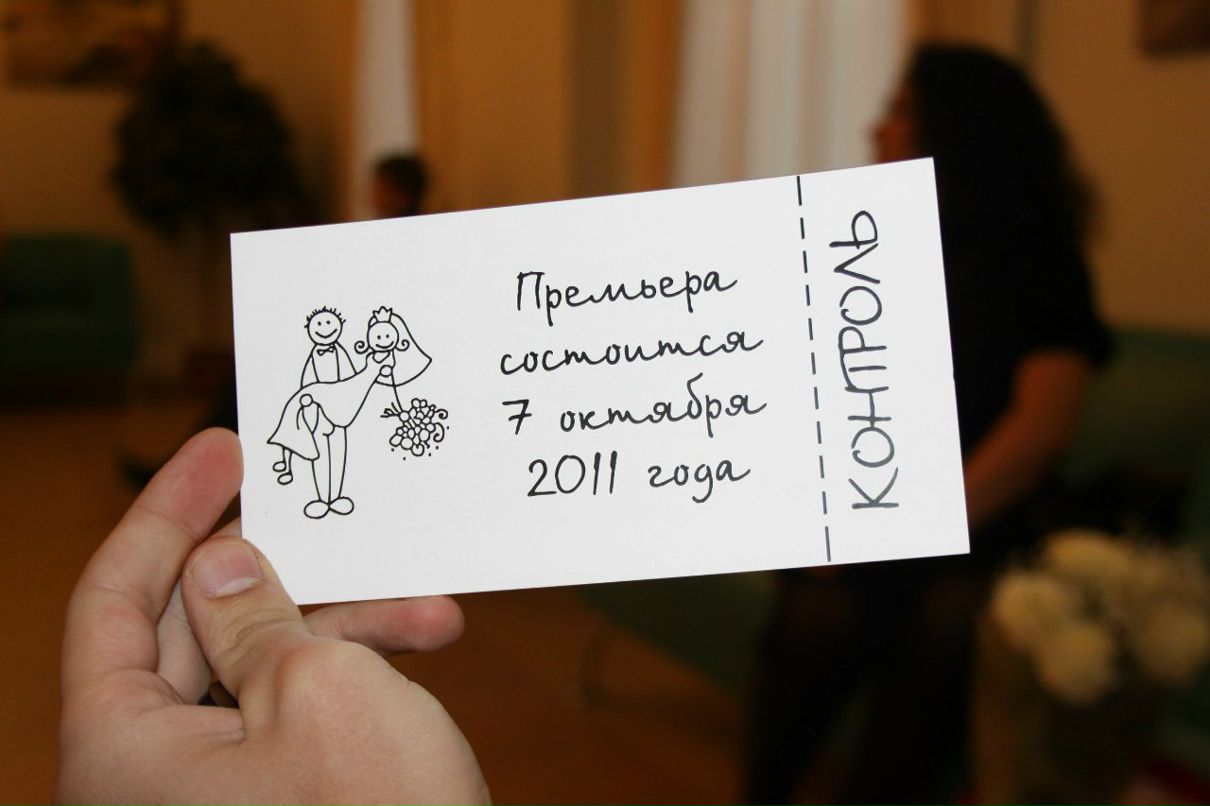 Премьера
состоится
7 октября
2011 года
КОНТРОЛЬ